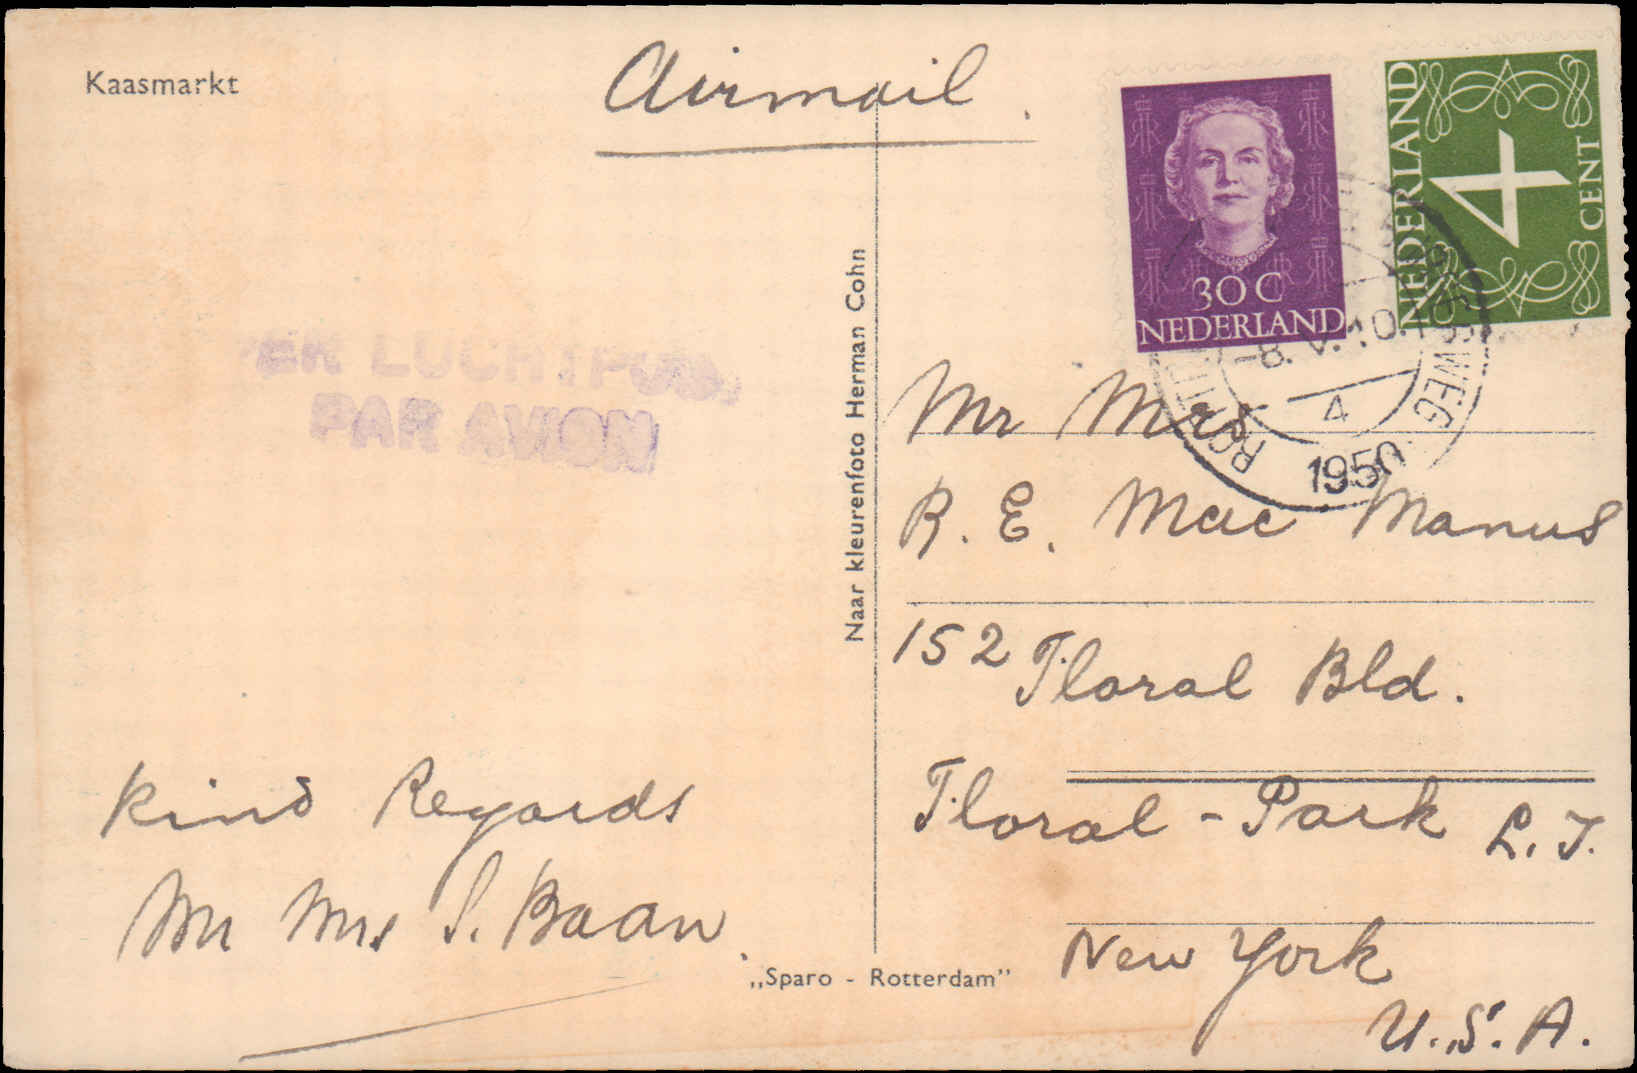 Kaasmarkt
Airmail.
30 C
NEDERLAND
NEDERLAND
4
CENT
-8.V.10.
4
1950
PER LUCHTPOST
PAR AVION
Naar kleurenfoto Herman Cohn
Mr Mrs
R. E. Mac Manus
152 Floral Bld.
Floral - Park L. I.
New York
U.S.A.
Kind Regards
Mr Mrs S. Baan
„Sparo - Rotterdam"